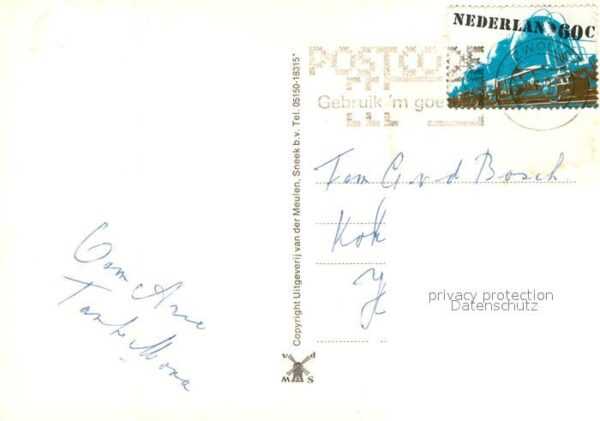 NEDERLAND 60C
POSTCODE
Gebruik 'm goe
Fam G vd Bosch
Kok
privacy protection
Datenschutz
Oom Arie
Tante Mona
Copyright Uitgeverij van der Meulen, Sneek b.v. Tel. 05150-18315*
v d
M S